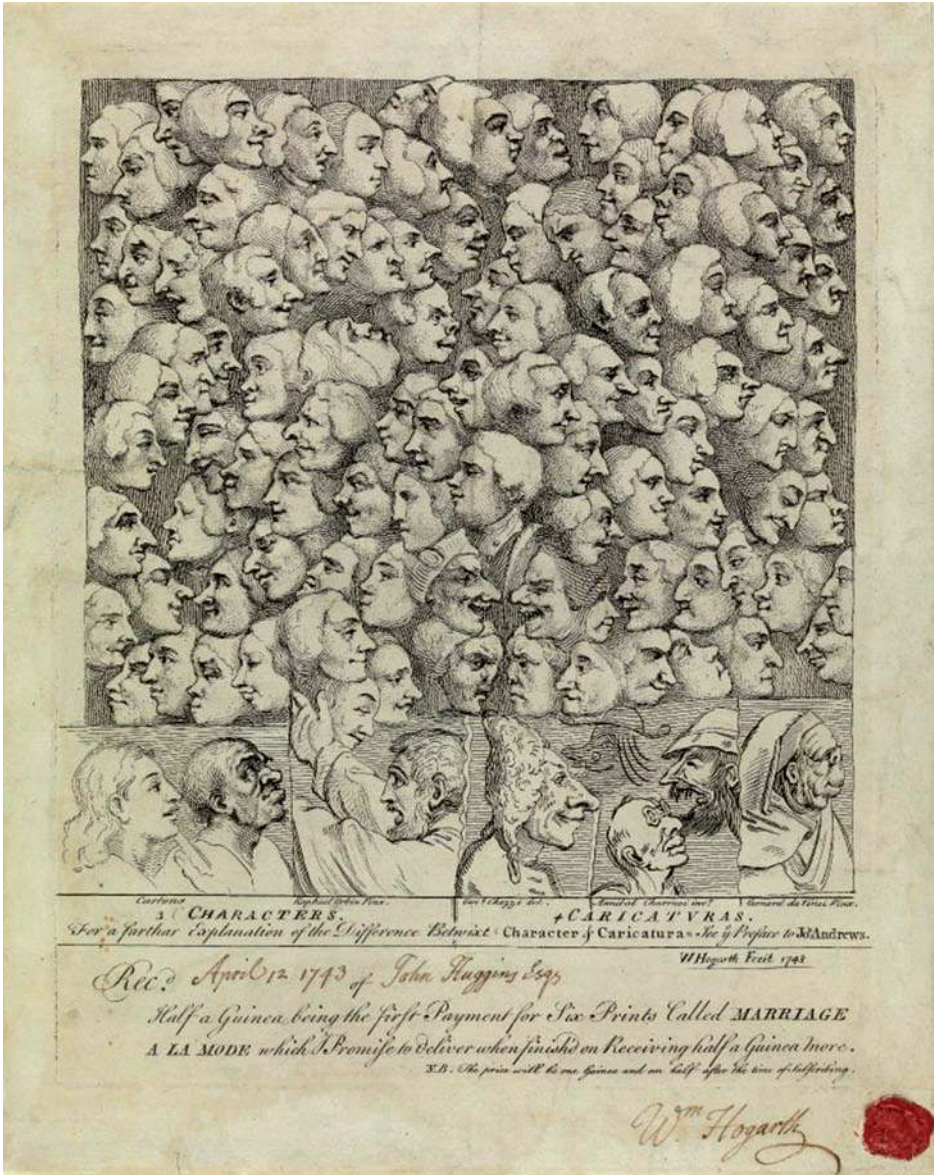 Cartons Raphael Urbin Pinx. Cavr. Ghezze del. Annibal Charracci inv. Leonard da Vinci Pinx.
3 CHARACTERS. 4 CARICATVRAS.
For a farthar Explanation of the Difference Betwixt Character & Caricatura See ye Preface to Jos. Andrews.
W Hogarth Fecit 1743
Recd. April 12 1743 of John Huggins Esqr
Half a Guinea being the first Payment for Six Prints Called MARRIAGE
A LA MODE which I Promise to deliver when finish'd on Receiving half a Guinea more.
N.B. The price will be one Guinea and an half after the time of subscribing.
Wm Hogarth